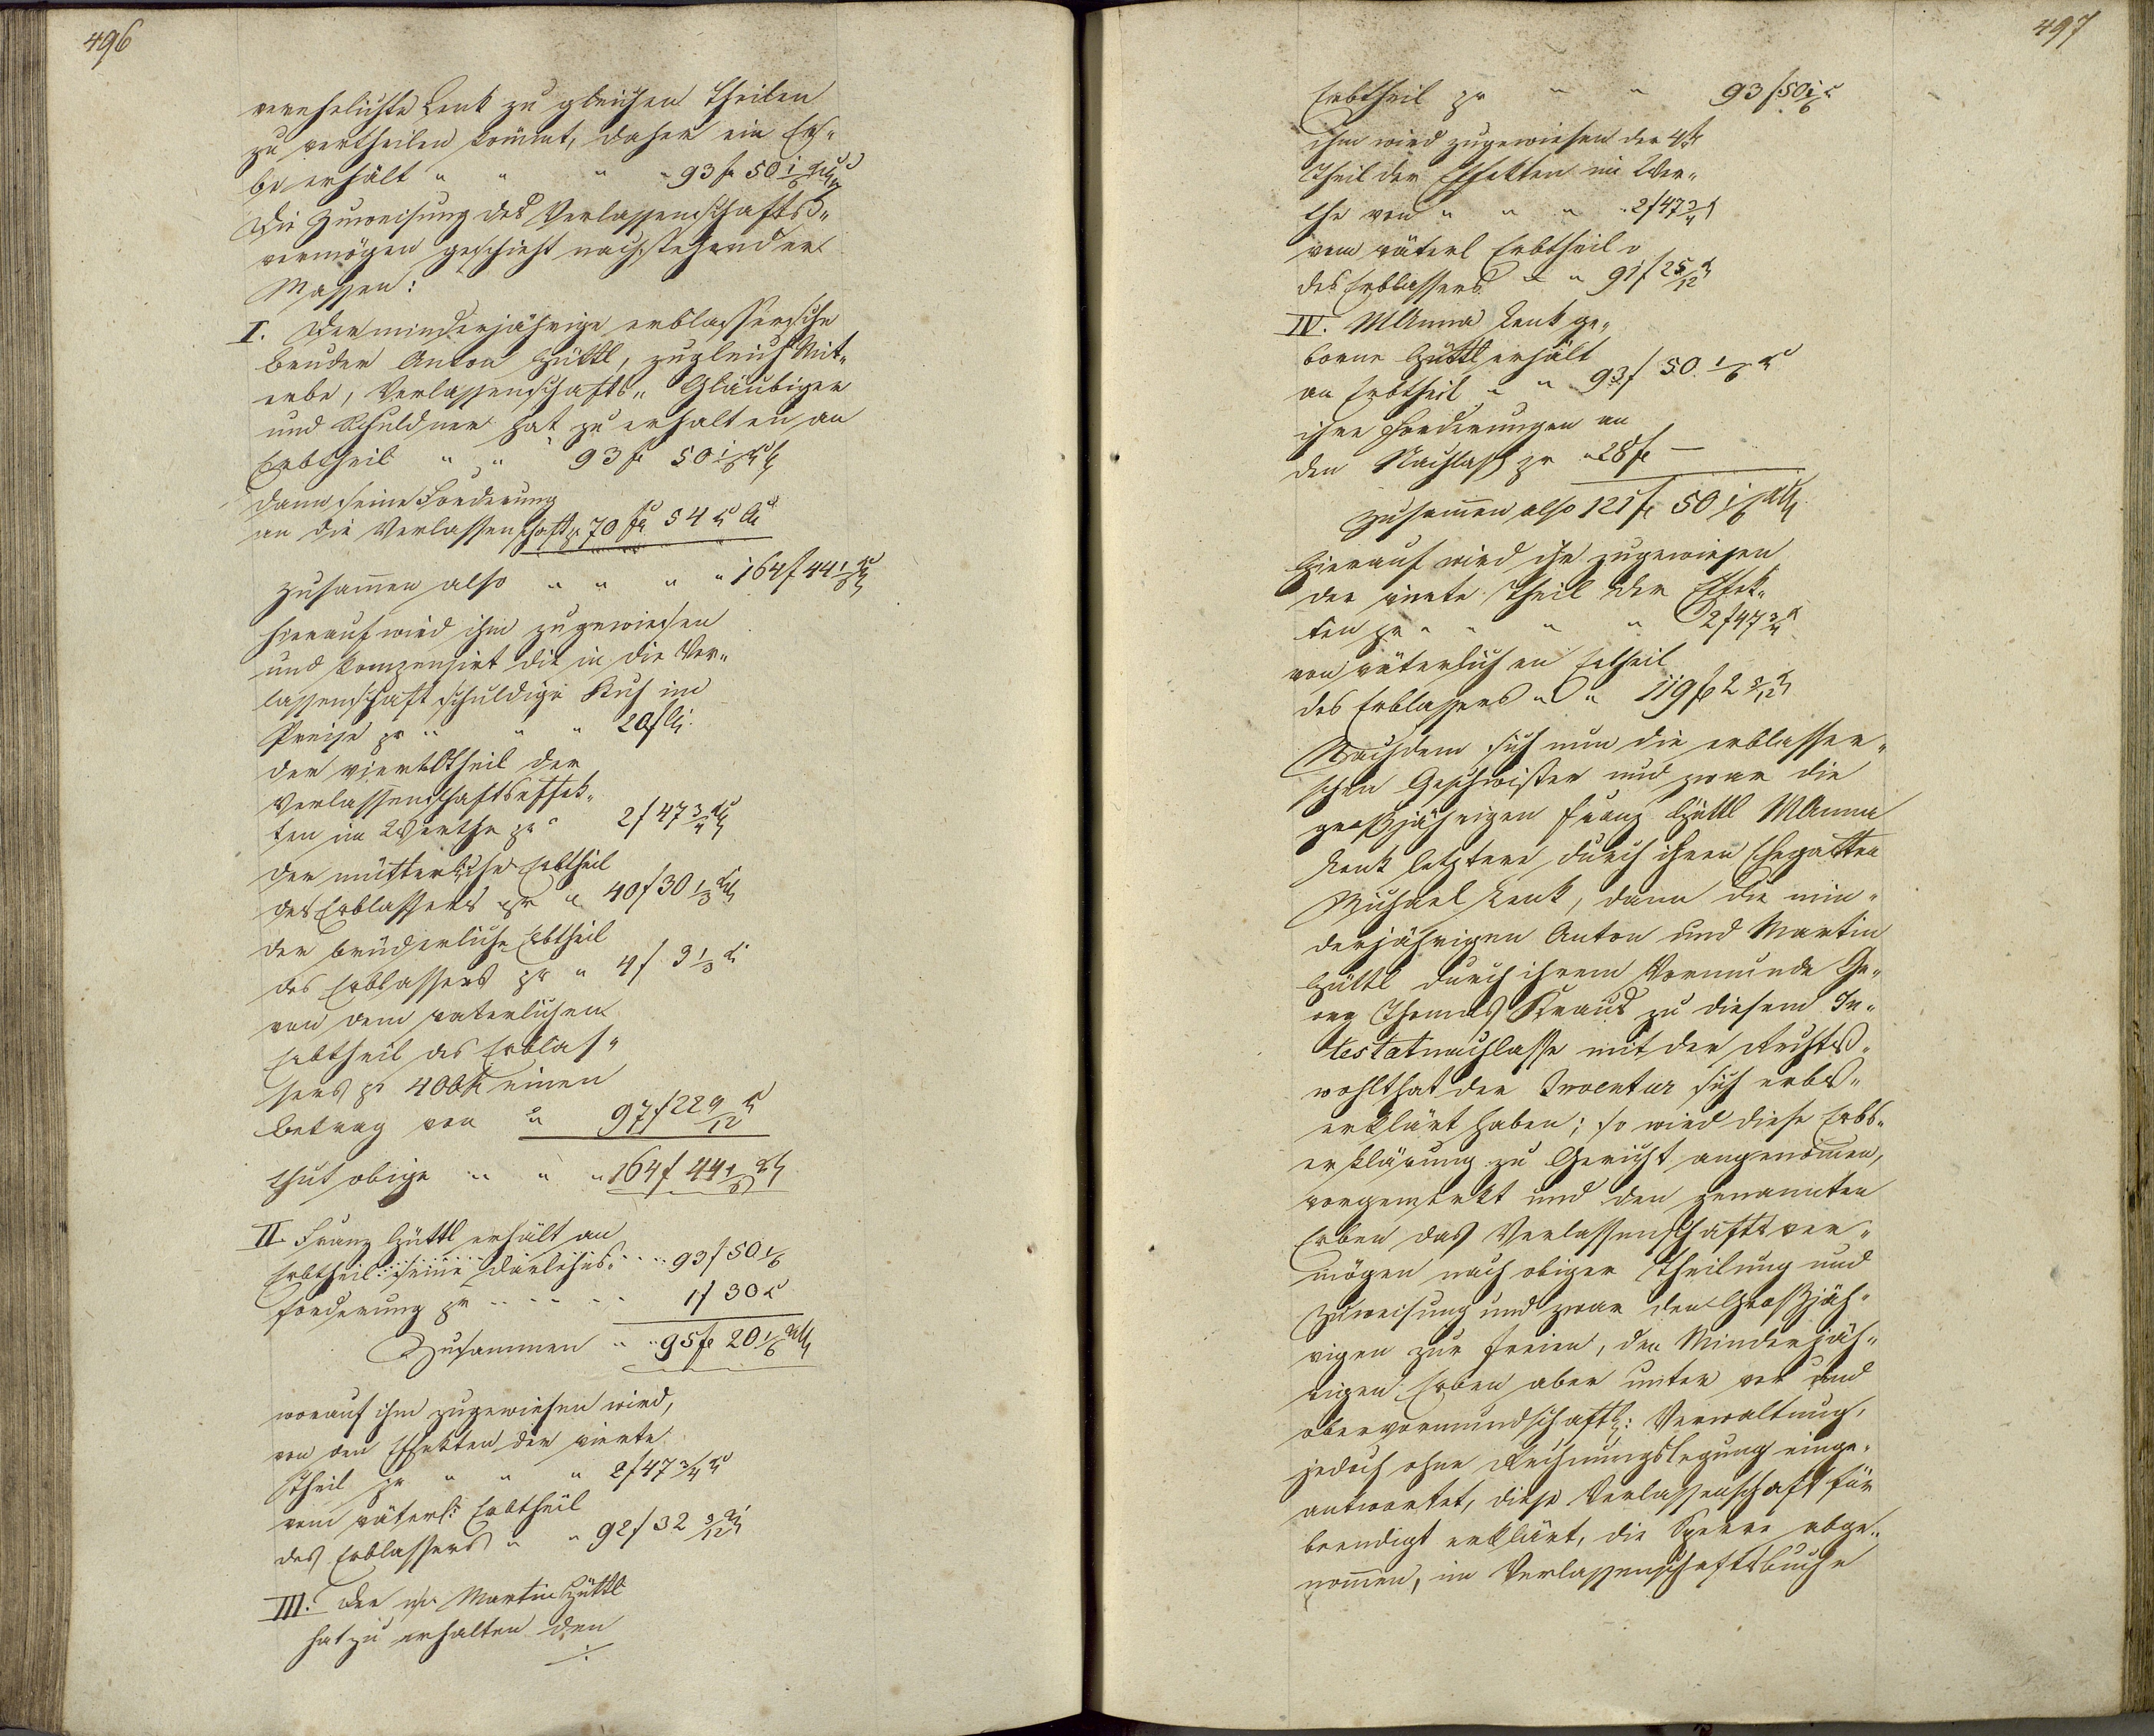 496
verehelichte Lenk zu gleichen Theilen
zu vertheilen kommt, daher ein Er„
be erhält " " " " 93 f 50 1/6 xr
Die Zuweisung des Verlassenschafts„
vermögen geschieht nachstehender
Massen:
I. Der minderjährige erblasserische
Bruder Anton Hüttl, zugleich Mit„
erbe, Verlassenschafts„ Gläubiger
und Schuldner hat zu erhalten an
Erbtheil " " 93 f 50 1/6 xr
dann seine Forderung
an die Verlassenschaft pr 70 f 54 xr
zusammen also " " " " 164 f 44 1/6 xr
hierauf wird ihm zugewiesen
und kompensirt die in die Ver„
lassenschaft schuldige Kuh im
Preise pr " " " 20 f
der viertl Theil der
Verlassenschaftseffek„
ten im Werthe pr " 2 f 47 3/4 xr
der mütterliche Erbtheil
des Erblassers pr " 40 f 30 1/3 xr
der brüderliche Erbtheil
des Erblassers pr " 4 f 3 1/3 x
von dem vaterlichen
Erbtheil des Erblas„
sers pr 400 f einen
Betrag von " 97 f 22 9/12 x
thut obige " " " 164 f 44 1/6 xr
II. Franz Hüttl erhält an
Erbtheil: seine Darlehns„ " " 93 f 50 1/6
forderung pr " " " " 1 f 30 x
Zusammen " " 95 f 20 1/6 xr
worauf ihm zugewiesen wird,
von den Effekten der vierte
Theil pr " " " 2 f 47 3/4 x
vom väterl: Erbtheil
des Erblassers " " 92 f 32 5/12 xr
III. Der mj. Martin Hüttl
hat zu erhalten den
./.
497
Erbtheil pr " " 93 f 50 1/6 x
ihm wird zugewiesen der 4te
Theil der Effekten im Wer„
the von " " " " 2 f 47 3/4 x
vom väterl Erbtheil
des Erblassers " " 91 f 2 5/12 x
IV. MAnna Lenk ge„
borne Hüttl erhält
an Erbtheil " " 93 f 50 1/6 x
ihre Forderungen an
den Nachlass pr " 28 f —
Zusammen also 121 f 50 1/6 xr
Hierauf wird ihr zugewiesen
der vierte Theil der Effek„
ten pr " " " " 2 f 47 3/4 x
von väterlichen Erbtheil
des Erblassers " " 119 f 2 5/12 x
Nachdem sich nun die erblasser„
schen Geschwister und zwar die
großjährigen Franz Hüttl MAnna
Lenk letztere durch ihren Ehegatten
Michael Lenk, dann die min„
derjährigen Anton und Martin
Hüttl durch ihrem Vormunde Ge„
org Thomas Kraus zu diesem In„
testatnachlasse mit der Rechts„
wohlthat der Inventur sich erbs„
erklärt haben; so wird diese Erbs„
erklärung zu Gericht angenommen,
vorgemerkt und den genannten
Erben das Verlassenschaftsver„
mögen nach obiger Theilung und
Zuweisung und zwar den Großjäh„
rigen zur freien, den Minderjäh„
rigen Erben aber unter vor und
obervormundschaftl: Verwaltung,
jedoch ohne Rechnungslegung einge„
antwortet, diese Verlassenschaft für
beendigt erklärt, die Sperre abge„
nommen, im Verlassenschaftsbuche